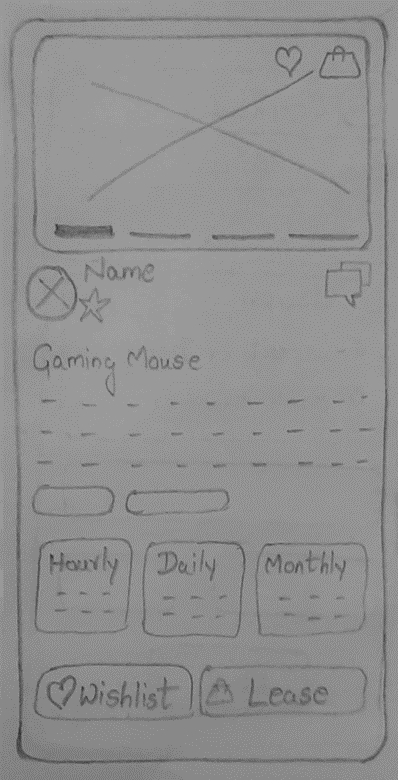 Name
Gaming Mouse
Hourly
Daily
Monthly
Wishlist
Lease